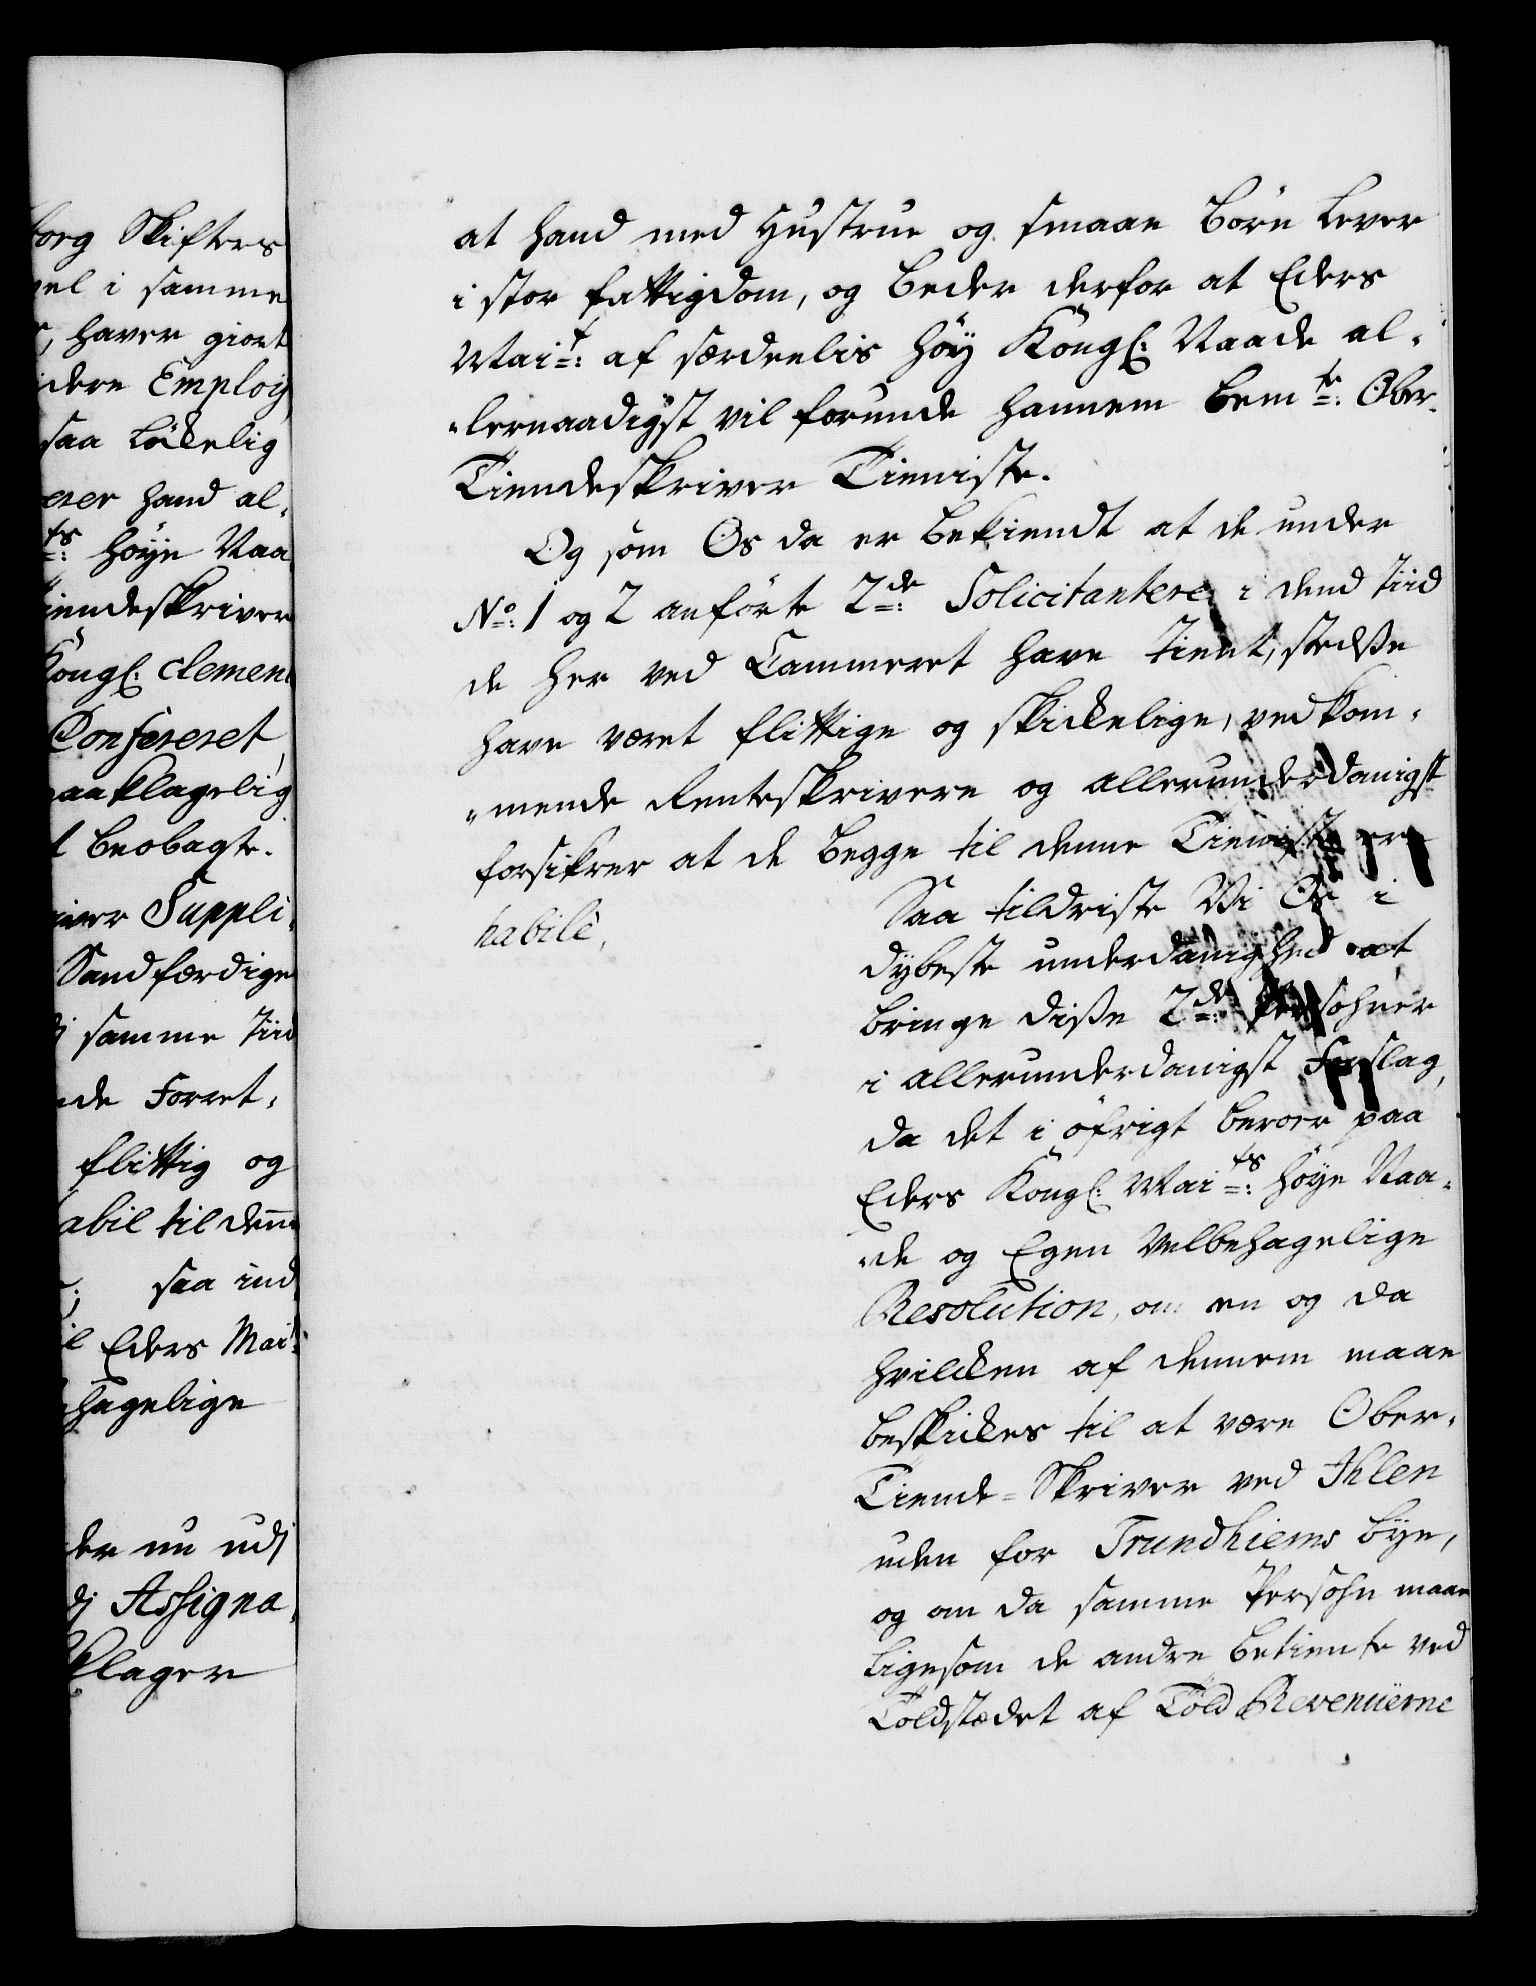 borg Skifters
vel i samme
r, haver giort
idere Employ
saa lökelig
erer hand al,
ts: höye Naa
iendeskriver
Kongl: clemenc
Confereret,
paaklagelig
t beobagte.
iver Suppli,
Sandfærdige
i samme Tiid
nde Forret,
flittig og
abil til denne
saa ind
il Eders Mai
hagelige
der nu udj
dj Assigna,
klager
at hand med Hustrue og smaae Börn lever
i stor fattigdom, og beder derfor at Eders
Maitt: af særdeelis höy Kongl: Naade al,
lernaadigst vil forunde hannem bemte: Ober,
Tiendeskriver Tieniste.
Og som Os da er bekiendt at de under
No: 1 og 2 anförte 2de: Solicitantere i dend Tiid
de her ved Cammeret have tient, stedße
have været flittige og skickelige, vedkom,
mende Renteskrivere og allerunderdanigst
forsikrer at de begge til denne Tieniste ere
habile,
Saa tildriste Vi Os i
dybeste underdanighed at
bringe diße 2de: Persohner
i allerunderdanigst Forslag,
da det i öfrigt beroer paa
Eders Kongl: Maits: höye Naa,
de og Egen Velbehagelige
Resolution, om en og da
hvilcken af dennem maae
beskickes til at være Ober,
Tiende=Skriver ved Ihlen
uden for Trundhiems bye,
og om da samme Persohn maae
ligesom de andre betiente ved
Toldstædet af Told Revenüerne